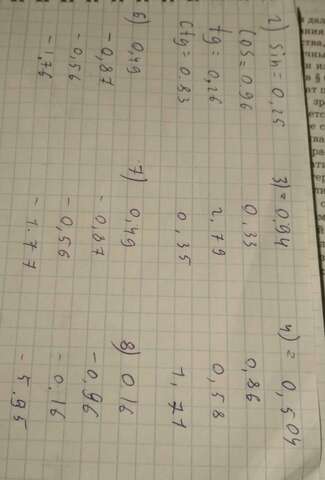 2) sin = 0,25
Cos = 0.96
tg = 0,26
ctg = 0.83
3) = 0,94
0,33
2.79
0,35
4) = 0,504
0,86
0,58
1,71
6) 0,49
-0,87
-0,56
-1,76
7) 0,49
-0,87
-0,56
-1.77
8) 0 16
-0,96
-0.16
-5.95